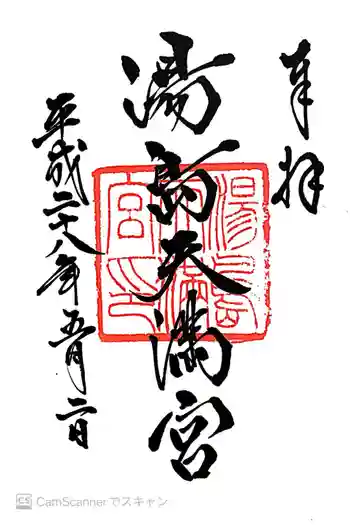 奉拝
湯島天満宮
平成二十八年五月二日
湯島天満宮印
CS CamScannerでスキャン